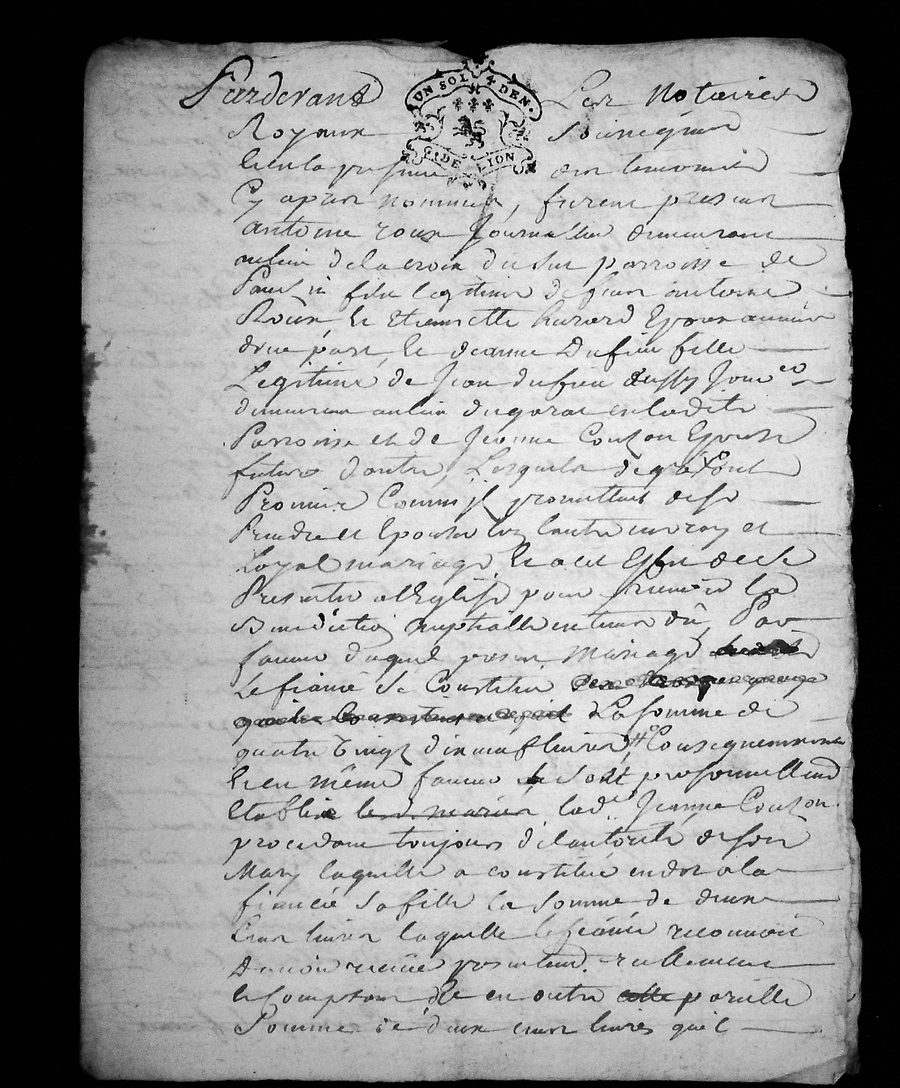 Pardevant Les Notaires
UN SOL 4 DEN.
Royaux Soussignés
G. DE LION
et en la presence des temoins
Cy apres nommés, furent presens
antoine roux Journallier demeurant
au lieu de la croix du sur parroisse de
fils legitime de Jean antoine
Roux et Etiennette Epoux avenir
d'une part, et Jeanne Dufieu fille
Legitime de Jean dufieu aussy Jour
demeurant au lieu du garat en ladite
Parroisse et de Jeanne Couzon Epouse
future d'autre, Lesquels de gré sont
Promis comme ils promettent de se
Prendre et Epouser l'un l'autre en vray et
Loyal mariage, Et a cet Effet de se
Presenter a l'Eglise pour recevoir la
Benediction nuptialle en tems dû, Par
faveur duquel present Mariage
Le fiancé Se Constitue
La Somme de
quatre vingt dix neuf livres, Consequemment
Et en même faveur s'est personnellement
Etablie lad.e Jeanne Couzon
procedant toujours de l'autorité de son
Mary laquelle a constitué en dot a la
fiancée sa fille la somme de deux
Cens livres laquelle le reconnoit
D'avoir recüe presentem. reellement
et comptant de en outre pareille
Somme de deux cens livres qu'il